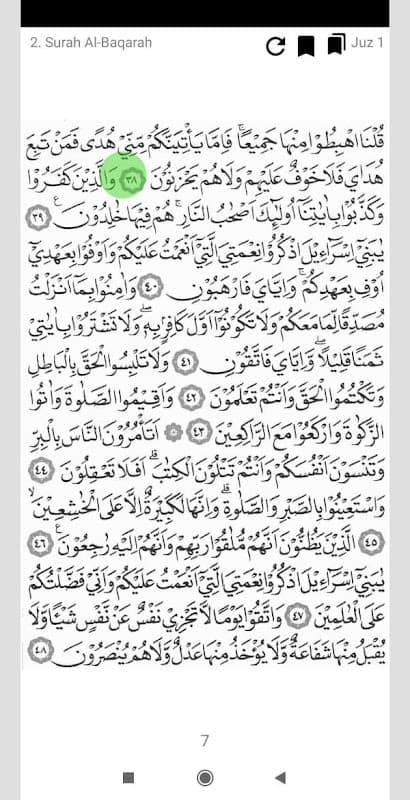 2. Surah Al-Baqarah Juz 1
قُلْنَا اهْبِطُوْا مِنْهَا جَمِيْعًا ۚ فَاِمَّا يَأْتِيَنَّكُمْ مِّنِّيْ هُدًى فَمَنْ تَبِعَ
هُدَايَ فَلَا خَوْفٌ عَلَيْهِمْ وَلَا هُمْ يَحْزَنُوْنَ ٣٨ وَالَّذِيْنَ كَفَرُوْا
وَكَذَّبُوْا بِاٰيٰتِنَآ اُولٰۤىِٕكَ اَصْحٰبُ النَّارِ ۚ هُمْ فِيْهَا خٰلِدُوْنَ ࣖ ٣٩
يٰبَنِيْٓ اِسْرَاۤءِيْلَ اذْكُرُوْا نِعْمَتِيَ الَّتِيْٓ اَنْعَمْتُ عَلَيْكُمْ وَاَوْفُوْا بِعَهْدِيْٓ
اُوْفِ بِعَهْدِكُمْۚ وَاِيَّايَ فَارْهَبُوْنِ ٤٠ وَاٰمِنُوْا بِمَآ اَنْزَلْتُ
مُصَدِّقًا لِّمَا مَعَكُمْ وَلَا تَكُوْنُوْٓا اَوَّلَ كَافِرٍۢ بِهٖ ۖ وَلَا تَشْتَرُوْا بِاٰيٰتِيْ
ثَمَنًا قَلِيْلًا ۖ وَّاِيَّايَ فَاتَّقُوْنِ ٤١ وَلَا تَلْبِسُوا الْحَقَّ بِالْبَاطِلِ
وَتَكْتُمُوا الْحَقَّ وَاَنْتُمْ تَعْلَمُوْنَ ٤٢ وَاَقِيْمُوا الصَّلٰوةَ وَاٰتُوا
الزَّكٰوةَ وَارْكَعُوْا مَعَ الرَّاكِعِيْنَ ٤٣ ۞ اَتَأْمُرُوْنَ النَّاسَ بِالْبِرِّ
وَتَنْسَوْنَ اَنْفُسَكُمْ وَاَنْتُمْ تَتْلُوْنَ الْكِتٰبَ ۗ اَفَلَا تَعْقِلُوْنَ ٤٤
وَاسْتَعِيْنُوْا بِالصَّبْرِ وَالصَّلٰوةِ ۗ وَاِنَّهَا لَكَبِيْرَةٌ اِلَّا عَلَى الْخٰشِعِيْنَۙ
٤٥ الَّذِيْنَ يَظُنُّوْنَ اَنَّهُمْ مُّلٰقُوْا رَبِّهِمْ وَاَنَّهُمْ اِلَيْهِ رٰجِعُوْنَ ࣖ ٤٦
يٰبَنِيْٓ اِسْرَاۤءِيْلَ اذْكُرُوْا نِعْمَتِيَ الَّتِيْٓ اَنْعَمْتُ عَلَيْكُمْ وَاَنِّيْ فَضَّلْتُكُمْ
عَلَى الْعٰلَمِيْنَ ٤٧ وَاتَّقُوْا يَوْمًا لَّا تَجْزِيْ نَفْسٌ عَنْ نَّفْسٍ شَيْـًٔا وَّلَا
يُقْبَلُ مِنْهَا شَفَاعَةٌ وَّلَا يُؤْخَذُ مِنْهَا عَدْلٌ وَّلَا هُمْ يُنْصَرُوْنَ ٤٨
7